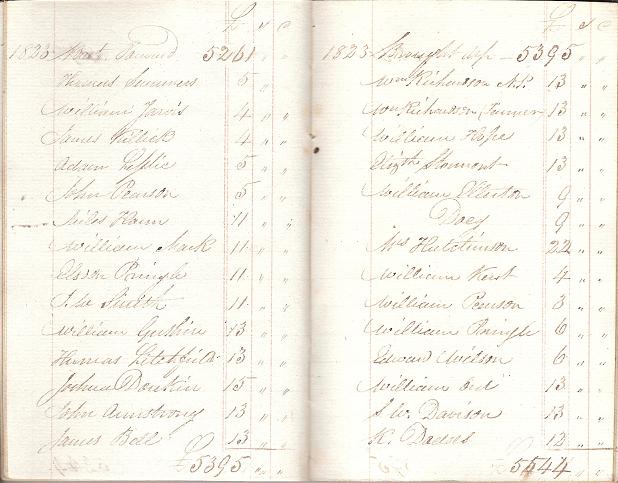 £ s d
1823 Brot Forward 5261 " "
Thomas Summers 5 " "
William Jarvis 4 " "
James Killick 4 " "
Adam Leslie 5 " "
John Pearson 5 " "
Miles Hann 11 " "
William Mark 11 " "
Pringle 11 " "
Smith 11 " "
William 13 " "
Thomas Litchfield 13 " "
Joshua Donkin 15 " "
John Armstrong 13 " "
James Bell 13 " "
£ 5395 " "
£ s d
1823 Brought up 5395 " "
Wm Richardson N.P. 13 " "
Wm Richardson Tanner 13 " "
William Hope 13 " "
Elizth Stormont 13 " "
William Ellerton 9 " "
Doeg 9 " "
Mrs Hutchinson 22 " "
William Kent 4 " "
William Pearson 3 " "
William Pringle 6 " "
Edward Wilson 6 " "
William Ord 13 " "
S. W. Davison 13 " "
K. 12 " "
£ 5544 " "